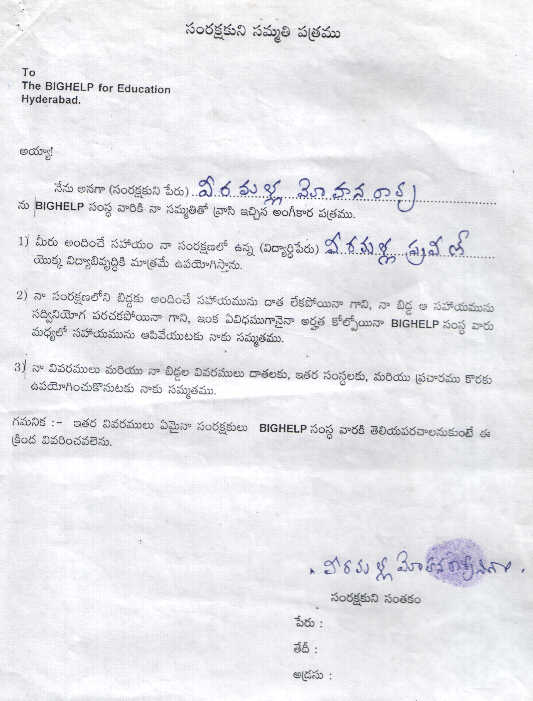 సంరక్షకుని సమ్మతి పత్రము
To
The BIGHELP for Education
Hyderabad.
అయ్యా!
నేను అనగా (సంరక్షకుని పేరు) వీరమళ్ల మోహనరావు
ను BIGHELP సంస్థ వారికి నా సమ్మతితో వ్రాసి ఇచ్చిన అంగీకార పత్రము.
1) మీరు అందించే సహాయం నా సంరక్షణలో ఉన్న (విద్యార్థిపేరు) వీరమళ్ల
యొక్క విద్యాభివృద్ధికి మాత్రమే ఉపయోగిస్తాను.
2) నా సంరక్షణలోని బిడ్డకు అందించే సహాయమును దాత లేకపోయినా గాని, నా బిడ్డ ఆ సహాయమును
సద్వినియోగ పరచకపోయినా గాని, ఇంక ఏవిధముగానైనా అర్హత కోల్పోయినా BIGHELP సంస్థ వారు
మధ్యలో సహాయమును ఆపివేయుటకు నాకు సమ్మతము.
3) నా వివరములు మరియు నా బిడ్డల వివరములు దాతలకు, ఇతర సంస్థలకు, మరియు ప్రచారము కొరకు
ఉపయోగించుకొనుటకు నాకు సమ్మతము.
గమనిక :- ఇతర వివరములు ఏమైనా సంరక్షకులు BIGHELP సంస్థ వారకి తెలియపరచాలనుకుంటే ఈ
క్రింద వివరించవలెను.
వీరమళ్ల
సంరక్షకుని సంతకం
పేరు :
తేదీ :
అడ్రసు :